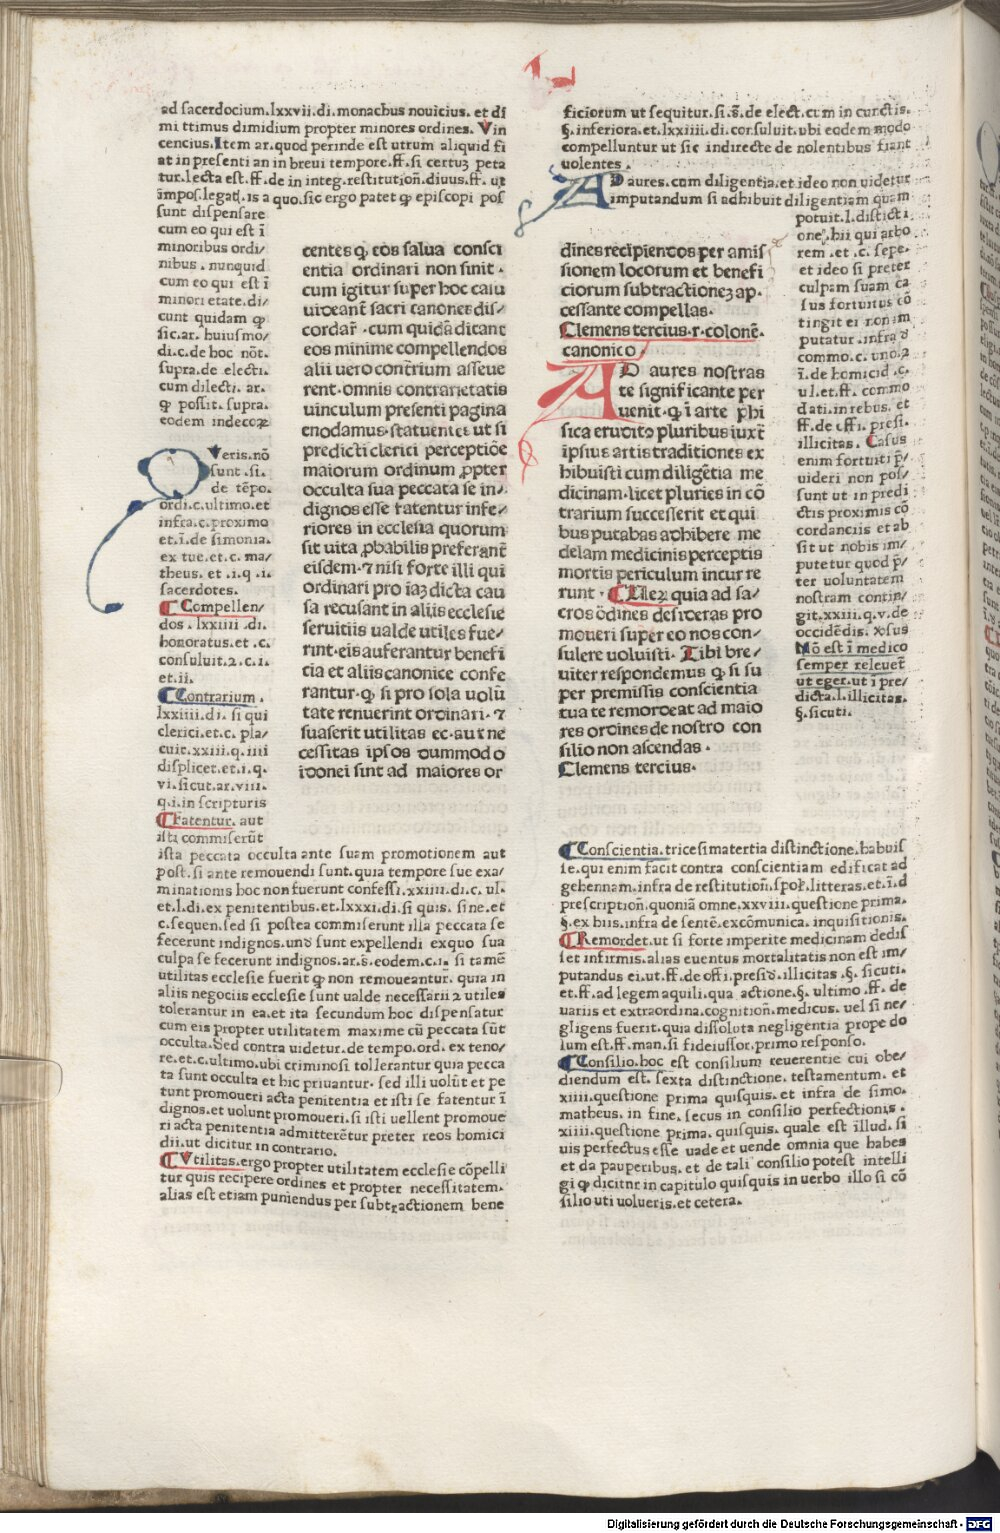 ad sacerdocium.lxxvii.di.monachus nouicius. et di
mi ttimus dimidium propter minores ordines. Vin
cencius. Item ar.quod perinde est utrum aliquid fi
at in presenti an in breui tempore.ff.si certuꝫ peta
tur.lecta est.ff.de in integ.restitutioñ.diuus.ff. ut
īmpos.legatꝭ.is a quo.sic ergo patet ꝙ episcopi pos
sunt dispensare
cum eo qui est ī
minoribus ordi/
nibus . nunquid
cum eo qui est ī
minori etate.di/
cunt quidam ꝙ
sic.ar. huiusmo/
di.c.de hoc nōt.
supra.de electi.
cum dilecti. ar.
ꝙ possit. supra.
eodem indecoꝝ
Veris.nō
sunt .si.
de tēpo.
ordi.c.ultimo.et
infra.c.proximo
et.ī.de simonia.
ex tue.et.c. ma/
theus. et .i.q .i.
sacerdotes.
Compellen/
dos . lxxiiii .di.
honoratus.et .c.
consuluit.2.c.i.
et.ii.
Contrarium .
lxxiiii.di. si qui
clerici.et.c. pla/
cuit.xxiii.q.iiii
displicet.et.i.q.
vi.sicut.ar.viii.
q.i.in scripturis
Fatentur. aut
isti commiserūt
ista peccata occulta ante suam promotionem aut
post.si ante remouendi sunt.quia tempore sue exa/
minationis hoc non fuerunt confessi.xxiiii.di.c. ul.
et.l.di.ex penitentibus.et.lxxxi.di.si quis. sine.et
c.sequen.sed si postea commiserunt illa peccata se
fecerunt indignos.unđ sunt expellendi exquo sua
culpa se fecerunt indignos.ar.s̄.eodem.c.i. si tamē
utilitas ecclesie fuerit ꝙ non remoueantur. quia in
aliis negociis ecclesie sunt ualde necessarii 2 utiles
tolerantur in ea.et ita secundum hoc dispensatur
cum eis propter utilitatem maxime cū peccata sūt
occulta.Sed contra uidetur.de tempo.ord. ex teno/
re.et.c.ultimo.ubi criminosi tollerantur quia pecca
ta sunt occulta et hic priuantur. sed illi uolūt et pe
tunt promoueri acta penitentia et isti se fatentur ī
dignos.et uolunt promoueri.si isti uellent promoue
ri acta penitentia admitterētur preter reos homici
dii.ut dicitur in contrario.
Vtilitas.ergo propter utilitatem ecclesie cōpelli
tur quis recipere ordines et propter necessitatem.
alias est etiam puniendus per subtractionem bene
centes ꝙ eos salua consci
entia ordinari non sinit.
cum igitur super hoc casu
uideant̄ sacri canones dis/
cordar̄ .cum quidā dicant
eos minime compellendos
alii uero contrium asseue
rent.omnis contrarietatis
uinculum presenti pagina
enodamus.statuentes ut si
predicti clerici perceptiōe
maiorum ordinum ꝓpter
occulta sua peccata se in/
dignos esse fatentur infe/
riores in ecclesia quorum
sit uita ꝓbabilis preferant̄
eisdem.⁊ nisi forte illi qui
ordinari pro iaꝫ dicta cau
sa recusant in aliis ecclesie
seruitiis ualde utiles fue/
rint.eis auferantur benefi
cia et aliis canonice confe
rantur.ꝙ si pro sola uolū
tate renuerint ordinari.⁊
suaserit utilitas ec.aut ne
cessitas ipsos dummodo
idonei sint ad maiores or
ficiorum ut sequitur.si.s̄.de elect.cum in cunctis.
§.inferiora.et.lxxiiii.di.consuluit.ubi eodem modo
compelluntur ut sic indirecte de nolentibus fiant
uolentes .
AD aures.cum diligentia.et ideo non uidetur
imputandum si adhibuit diligentiam quam
potuit.l.disticti
one.hii qui arbo
rem .et .c. sepe.
et ideo si preter
culpam suam ca
sus fortuitus cō
tingit ei non im
putatur .infra đ
commo.c. uno.2
ī.de homicid .c.
ul.et.ff. commo
dati.in rebus. et
ff.de offi. presi.
illicitas. Casus
enim fortuiti p̄/
uideri non pos/
sunt ut in predi
ctis proximis cō
cordanciis et ab
sit ut nobis im/
putetur quod p̄/
ter uoluntatem
nostram contin/
git.xxiii.q.v.de
occidēdis. ꝟsus
Nō est ī medico
semper releuet̄
ut eger.ut ī pre/
dicta.l.illicitas.
§.sicuti.
dines recipiendos per amis
sionem locorum et benefi
ciorum subtractioneꝫ ap.
cessante compellas.
Clemens tercius.r.colonē.
canonico.
AD aures nostras
te significante per
uenit.ꝙ ī arte phi
sica eruditꝰ pluribus iuxt̄
ipsius artis traditiones ex
hibuisti cum diligētia me
dicinam.licet pluries in cō
trarium successerit et qui
bus putabas adhibere me
delam medicinis perceptis
mortis periculum incur re
runt . Uerꝫ quia ad sa/
cros ōdines desideras pro
moueri super eo nos con/
sulere uoluisti. Tibi bre/
uiter respondemus ꝙ si su
per premissis conscientia
tua te remordeat ad maio
res ordines de nostro con
silio non ascendas.
Clemens tercius.
Conscientia.tricesimatertia distinctione.habuis
se.qui enim facit contra conscientiam edificat ad
gehennam.infra de restitutioñ.społ.litteras.et.ī.đ
prescriptioñ.quoniā omne.xxviii.questione prima.
§.ex hiis.infra de sentē.excōmunica. inquisitionis.
Remordet.ut si forte imperite medicinam dedis
set infirmis.alias euentus mortalitatis non est im/
putandus ei.ut.ff.de offi.presiđ.illicitas .§. sicuti.
et.ff.ad legem aquili.qua actione.§. ultimo .ff. de
uariis et extraordina.cognitioñ.medicus. uel si ne/
gligens fuerit.quia dissoluta negligentia prope do
lum est.ff.man.si fideiussor.primo responso.
Consilio.hoc est consilium reuerentie cui obe/
diendum est. sexta distinctione. testamentum. et
xiiii.questione prima quisquis. et infra de simo.
matheus. in fine. secus in consilio perfectionis .
xiiii.questione prima. quisquis. quale est illud. si
uis perfectus esse uade et uende omnia que habes
et da pauperibus. et de tali consilio potest intelli
gi ꝙ dicitur in capitulo quisquis in uerbo illo si cō
silio uti uolueris.et cetera.
Digitalisierung gefördert durch die Deutsche Forschungsgemeinschaft - DFG